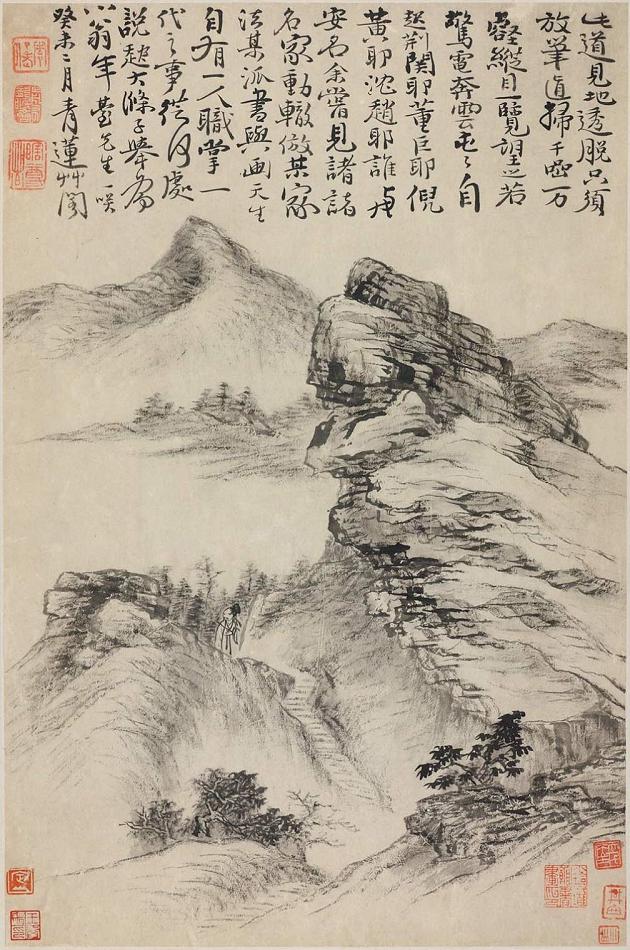 此道見地透脫只須
放筆直掃千巖万
壑縱目一覽望之若
驚電奔雲屯々自
起荊關耶董巨耶倪
黃耶沈趙耶誰與
安名余嘗見諸諸
名家動輒倣某家
法某派書與画天生
自有一人職掌一
代之事從何處
說起大滌子舉為
小翁年臺先生一咲
癸未二月青蓮艸閣